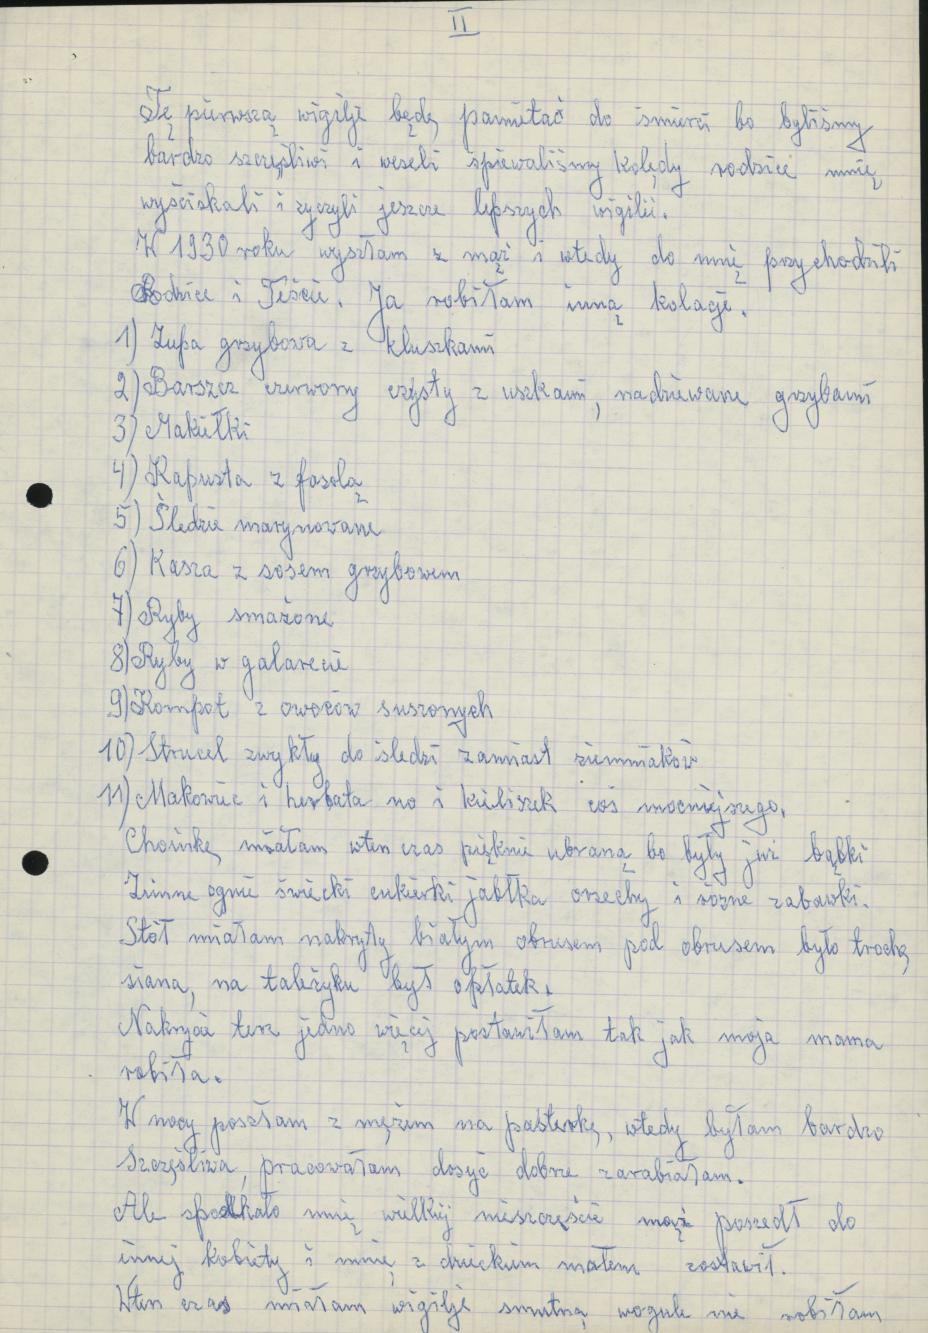 II
Tę pierwszą wigilje będę pamietać do śmierci bo byliśmy
bardzo szczęśliwi i weseli śpiewaliśmy kolędy rodzice mnię
wyściskali i rzyczyli jeszcze lepszych wigilii.
W 1930 roku wyszłam z mąż i wtedy do mnię przychodzili
Rodzice i Teście. Ja robiłam inną kolacje.
1) Zupa grzybowa z kluszkami
2) Barszcz czerwony czysty z uszkami, nadziewane grzybami
3) Makiełki
4) Kapusta z fasolą
5) Śledzie marynowane
6) Kasza z sosem grzybowem
7) Ryby smażone
8) Ryby w galarecie
9) Kompot z owoców suszonych
10) Strucel zwykły do śledzi zamiast ziemniaków
11) Makowiec i herbata no i kieliszek coś mocniejszego.
Choinkę miałam wten czas pięknie ubraną bo były już bąbki
Zimne ognie świecki cukierki jabłka orzechy i różne zabawki.
Stół miałam nakryty białym obrusem pod obrusem było trochę
siana, na tależyku był opłatek.
Nakrycie tesz jedno więcej postawiłam tak jak moja mama
robiła.
W nocy poszłam z mężem na pasterkę, wtedy byłam bardzo
szczęśliwa, pracowałam dosyć dobrze zarabiałam.
Ale spodkało mnię wielkiej nieszczęście mąż poszedł do
innej kobiety i mnię z dzieckiem małem zostawił.
Wten czas miałam wigilje smutną wogule nie robiłam